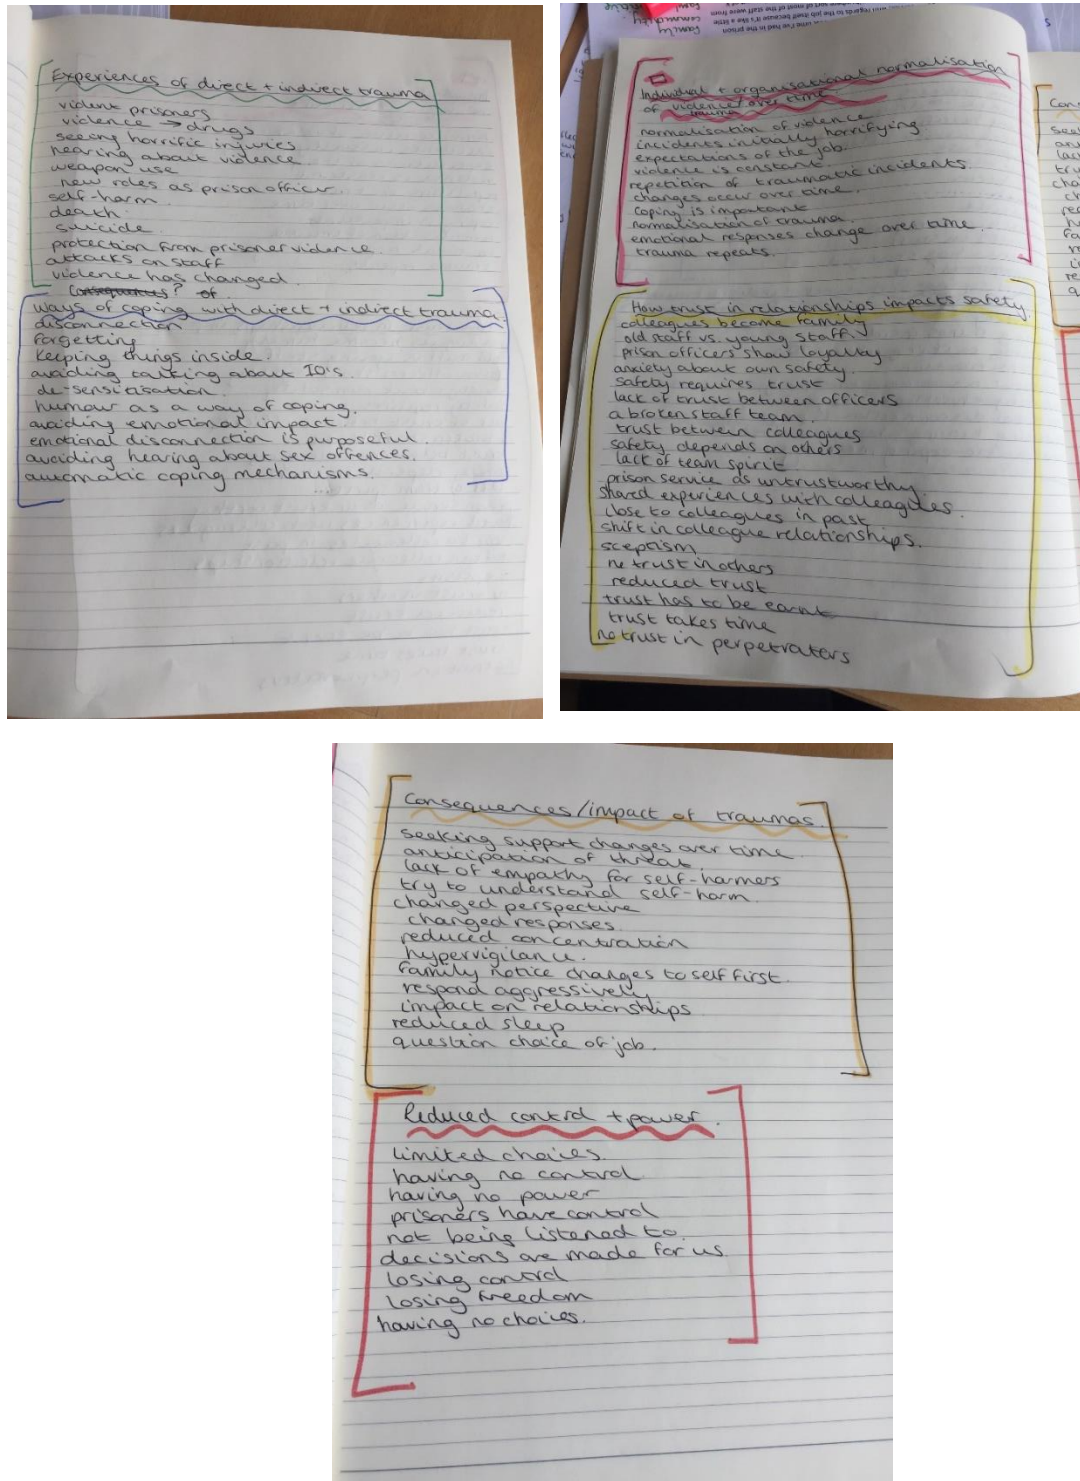 Experiences of direct + indirect trauma
violent prisoners
violence → drugs
seeing horrific injuries
hearing about violence
weapon use
new roles as prison officer.
self-harm.
death.
suicide.
protection from prisoner violence
attacks on staff
violence has changed.
Consequences? of
Ways of coping with direct + indirect trauma.
disconnection
forgetting
keeping things inside.
avoiding talking about IO's.
de-sensitisation.
humour as a way of coping.
avoiding emotional impact.
emotional disconnection is purposeful.
avoiding hearing about sex offences.
automatic coping mechanisms.
Individual + organisational normalisation
of violence/ over time.
trauma
normalisation of violence
incidents initially horrifying.
expectations of the job.
violence is constant.
repetition of traumatic incidents.
changes occur over time.
coping is important
normalisation of trauma.
emotional responses change over time.
trauma repeats.
How trust in relationships impacts safety.
colleagues become family
old staff vs. young staff.
prison officers show loyalty
anxiety about own safety.
safety requires trust
lack of trust between officers
a broken staff team.
trust between colleagues
safety depends on others
lack of team spirit
prison service as untrustworthy.
shared experiences with colleagues.
close to colleagues in past.
shift in colleague relationships.
sceptism
no trust in others
reduced trust
trust has to be earnt
trust takes time
no trust in perpetraters
Consequences/impact of traumas.
seeking support changes over time.
anticipation of threat.
lack of empathy for self-harmers
try to understand self-harm.
changed perspective
changed responses.
reduced concentration
hypervigilance.
family notice changes to self first.
respond aggressively
impact on relationships
reduced sleep
question choice of job.
Reduced control + power.
limited choices.
having no control
having no power
prisoners have control
not being listened to.
decisions are made for us
losing control
losing freedom
having no choices.